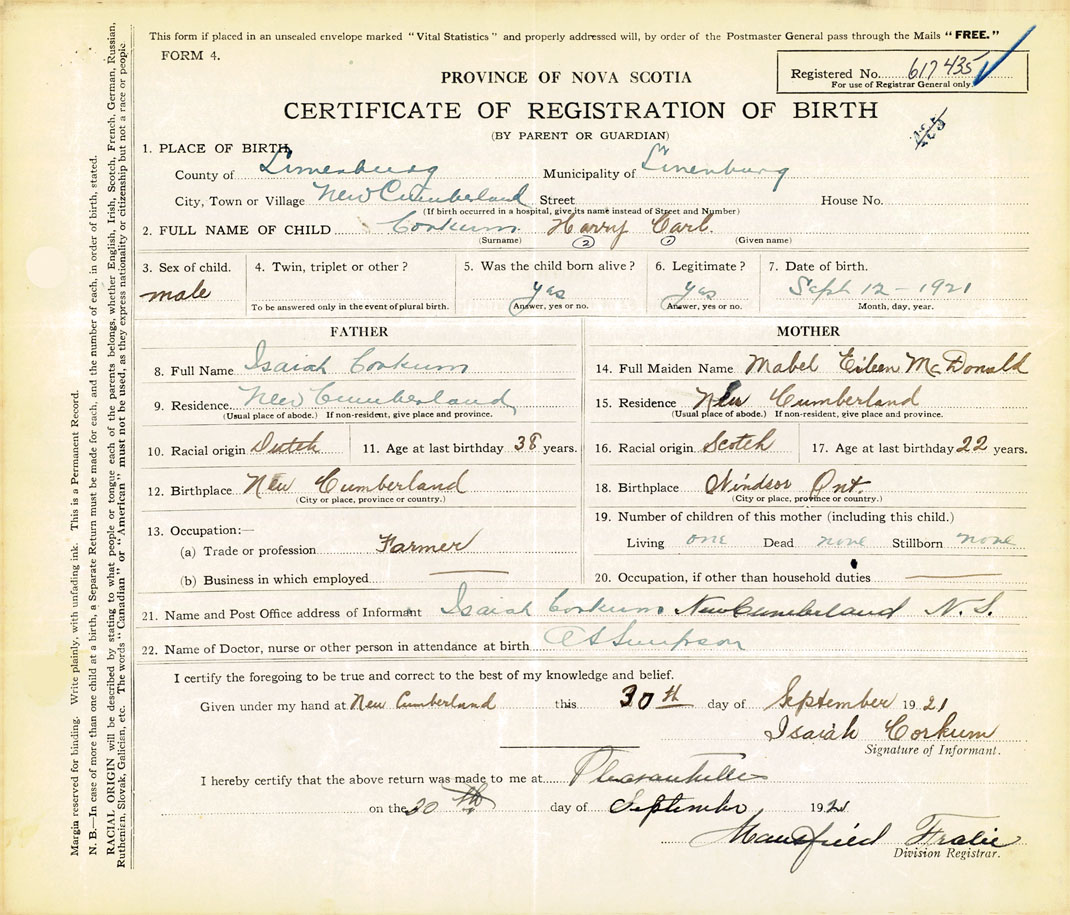 This form if placed in an unsealed envelope marked "Vital Statistics" and properly addressed will, by order of the Postmaster General pass through the Mails "FREE."
FORM 4.
Registered No. 617435
For use of Registrar General only.
PROVINCE OF NOVA SCOTIA
CERTIFICATE OF REGISTRATION OF BIRTH
(BY PARENT OR GUARDIAN)
1. PLACE OF BIRTH
County of Lunenburg Municipality of Lunenburg
City, Town or Village New Cumberland Street House No.
(If birth occurred in a hospital, give its name instead of Street and Number)
2. FULL NAME OF CHILD Corkum Harry Carl.
(Surname) (2) (1) (Given name)
3. Sex of child. 4. Twin, triplet or other? 5. Was the child born alive? 6. Legitimate? 7. Date of birth.
male yes yes Sept 12 - 1921
To be answered only in the event of plural birth. Answer, yes or no. Answer, yes or no. Month, day, year.
FATHER
8. Full Name Isaiah Corkum
9. Residence New Cumberland
(Usual place of abode.) If non-resident, give place and province.
10. Racial origin Dutch 11. Age at last birthday 38 years.
12. Birthplace New Cumberland
(City or place, province or country.)
13. Occupation:—
(a) Trade or profession Farmer
(b) Business in which employed
MOTHER
14. Full Maiden Name Mabel Eileen McDonald
15. Residence New Cumberland
(Usual place of abode.) If non-resident, give place and province.
16. Racial origin Scotch 17. Age at last birthday 22 years.
18. Birthplace Windsor Ont.
(City or place, province or country.)
19. Number of children of this mother (including this child.)
Living one Dead none Stillborn none
20. Occupation, if other than household duties
21. Name and Post Office address of Informant Isaiah Corkum New Cumberland N. S.
22. Name of Doctor, nurse or other person in attendance at birth Simpson
I certify the foregoing to be true and correct to the best of my knowledge and belief.
Given under my hand at New Cumberland this 30th day of September 1921
Isaiah Corkum
Signature of Informant.
I hereby certify that the above return was made to me at Pleasantville
on the 30th day of September 1921
Mansfield Fralic
Division Registrar.
Margin reserved for binding. Write plainly, with unfading ink. This is a Permanent Record.
N. B.—In case of more than one child at a birth, a Separate Return must be made for each, and the number of each, in order of birth, stated.
RACIAL ORIGIN will be described by stating to what people or tongue each of the parents belongs, whether English, Irish, Scotch, French, German, Russian,
Ruthenian, Slovak, Galician, etc. The words "Canadian" or "American" must not be used, as they express nationality or citizenship but not a race or people